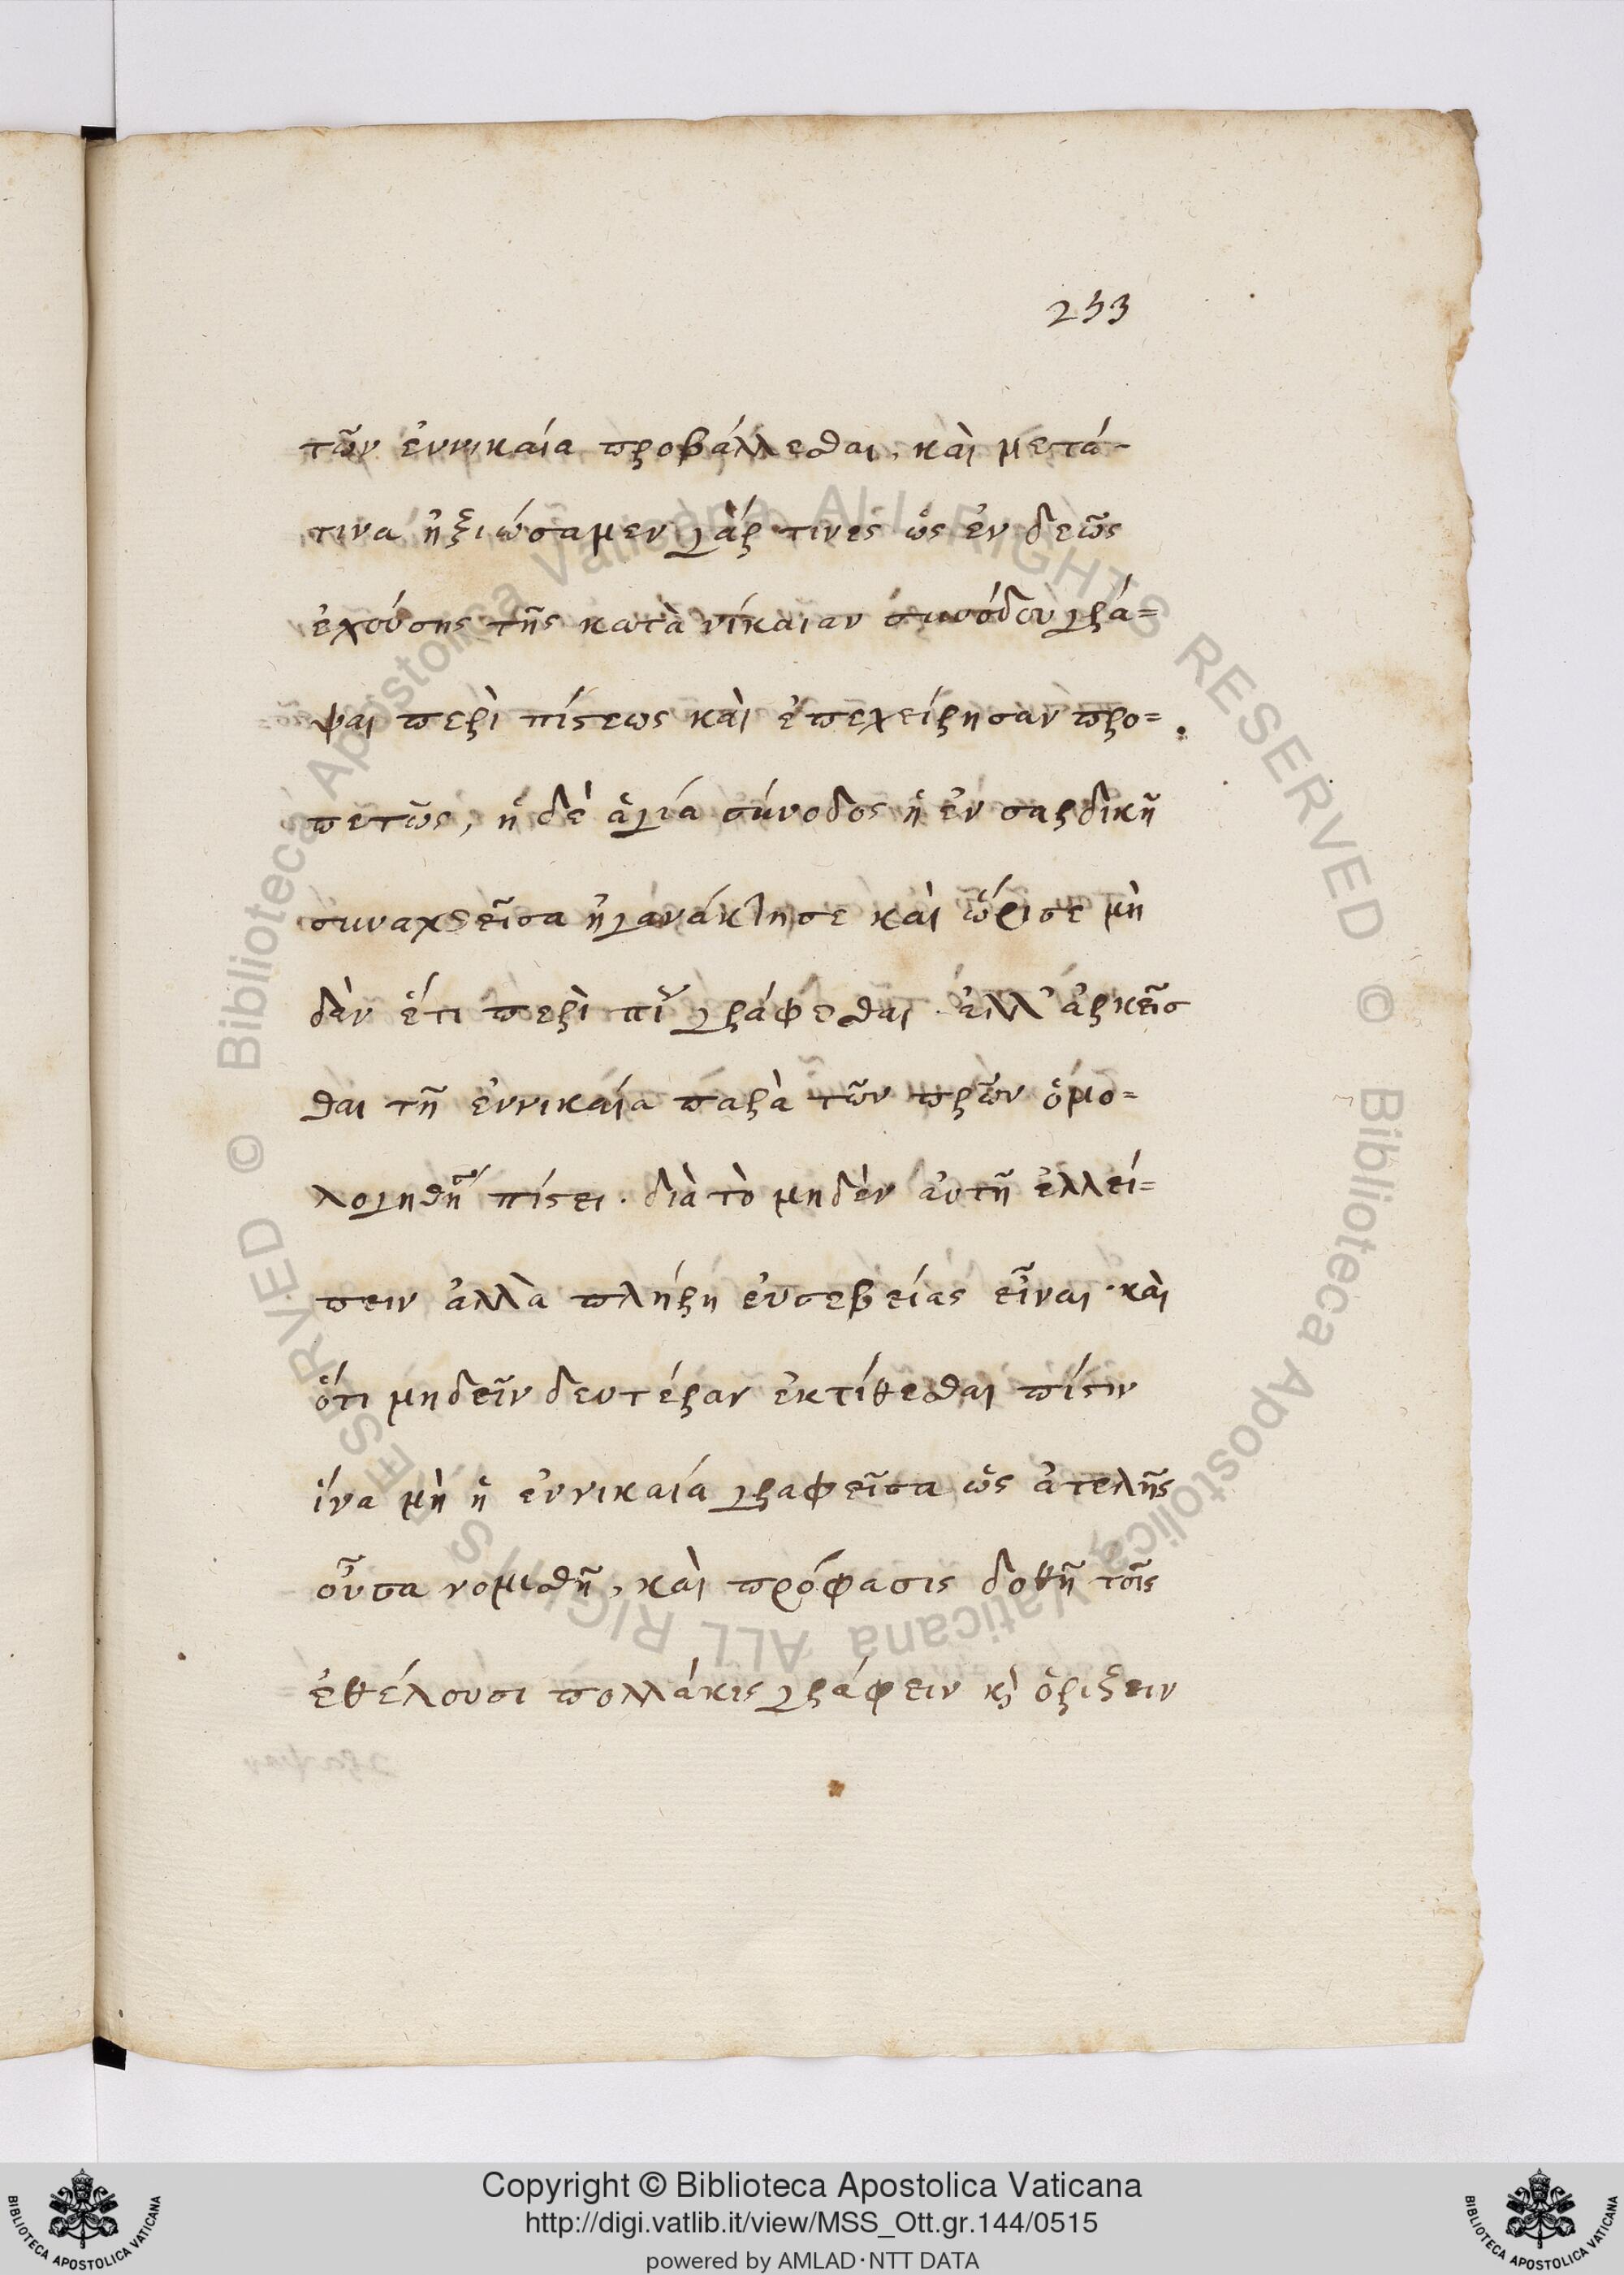 253
τῶν ἐννικαία προβάλλεσθαι, καὶ μετά-
τινα ἠξιώσαμεν γὰρ τινες ὡς ἐν δεῶς
ἐχούσης τῆς κατὰ νίκαιαν συνόδου γρά=
ψαι περὶ πίστεως καὶ ἐπεχείρησαν προ=
πετῶς, ἡ δὲ ἁγία σύνοδος ἡ ἐν σαρδικῇ
συναχθεῖσα ἠγανάκτησε καὶ ὥρισε μὴ
δὰν ἔτι περὶ πῖ γράφεσθαι. ἀλλ' ἀρκεῖσ
θαι τῇ ἐννικαία παρὰ τῶν πρ̄ων ὁμο=
λογηθῇ πίστει. διὰ τὸ μηδὲν αὐτῇ ἐλλεί=
πειν ἀλλὰ πλήρη εὐσεβείας εἶναι. καὶ
ὅτι μηδεῖν δευτέραν ἐκτίθεσθαι πίστιν
ἵνα μὴ ἡ ἐννικαία γραφεῖσα ὡς ἀτελῆς
οὖσα νομισθῇ, καὶ πρόφασις δοθῇ τοῖς
ἐθέλουσι πολλάκις γράφειν κὶ ὁρίζειν
Copyright © Biblioteca Apostolica Vaticana
http://digi.vatlib.it/view/MSS_Ott.gr.144/0515
powered by AMLAD·NTT DATA
BIBLIOTECA APOSTOLICA VATICANA
BIBLIOTECA APOSTOLICA VATICANA
© Biblioteca Apostolica Vaticana ALL RIGHTS RESERVED © Biblioteca Apostolica Vaticana ALL RIGHTS RESERVED